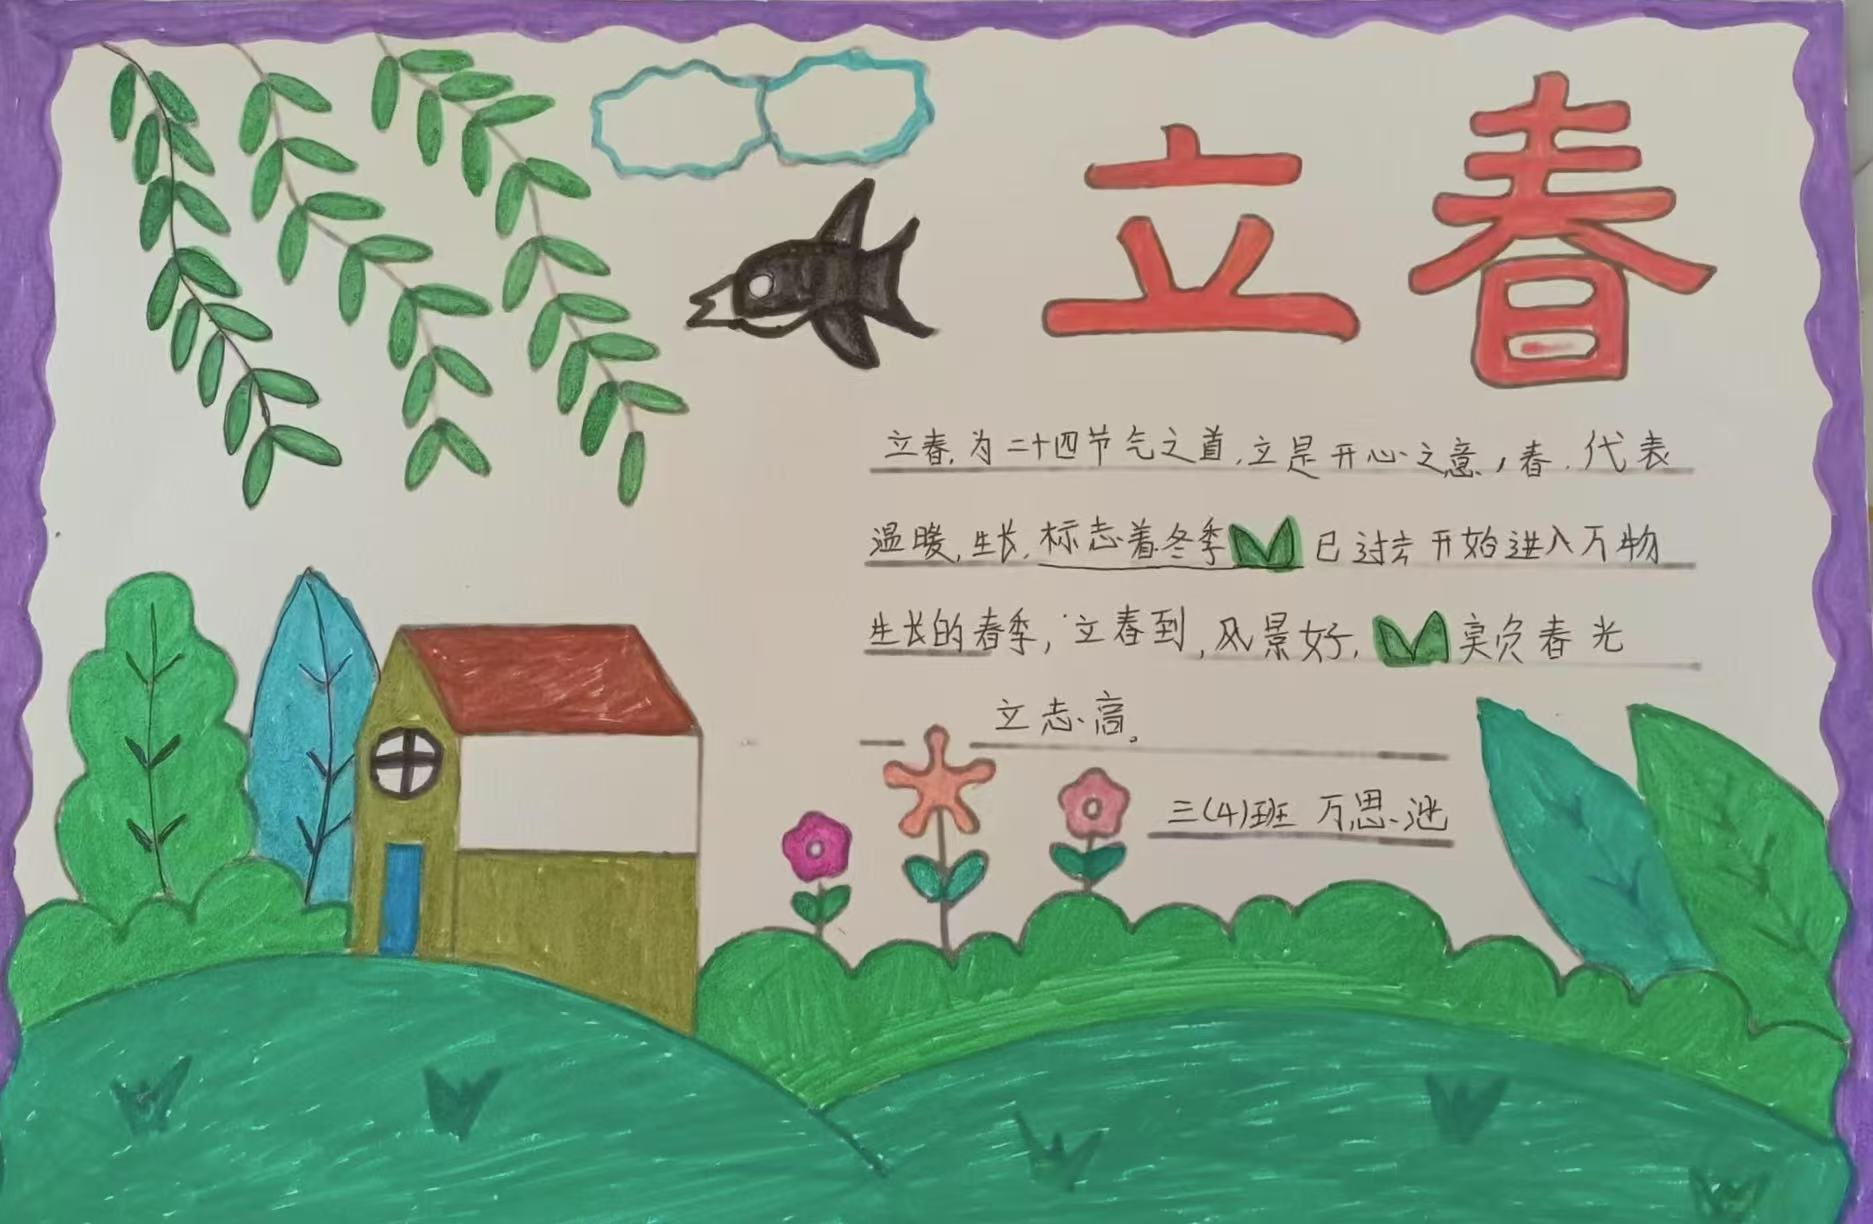 立春
立春,为二十四节气之首,立是开心之意,春.代表
温暖,生长,标志着冬季已过去开始进入万物
生长的春季,立春到,风景好,莫负春光
立志高。
三(4)班 万思